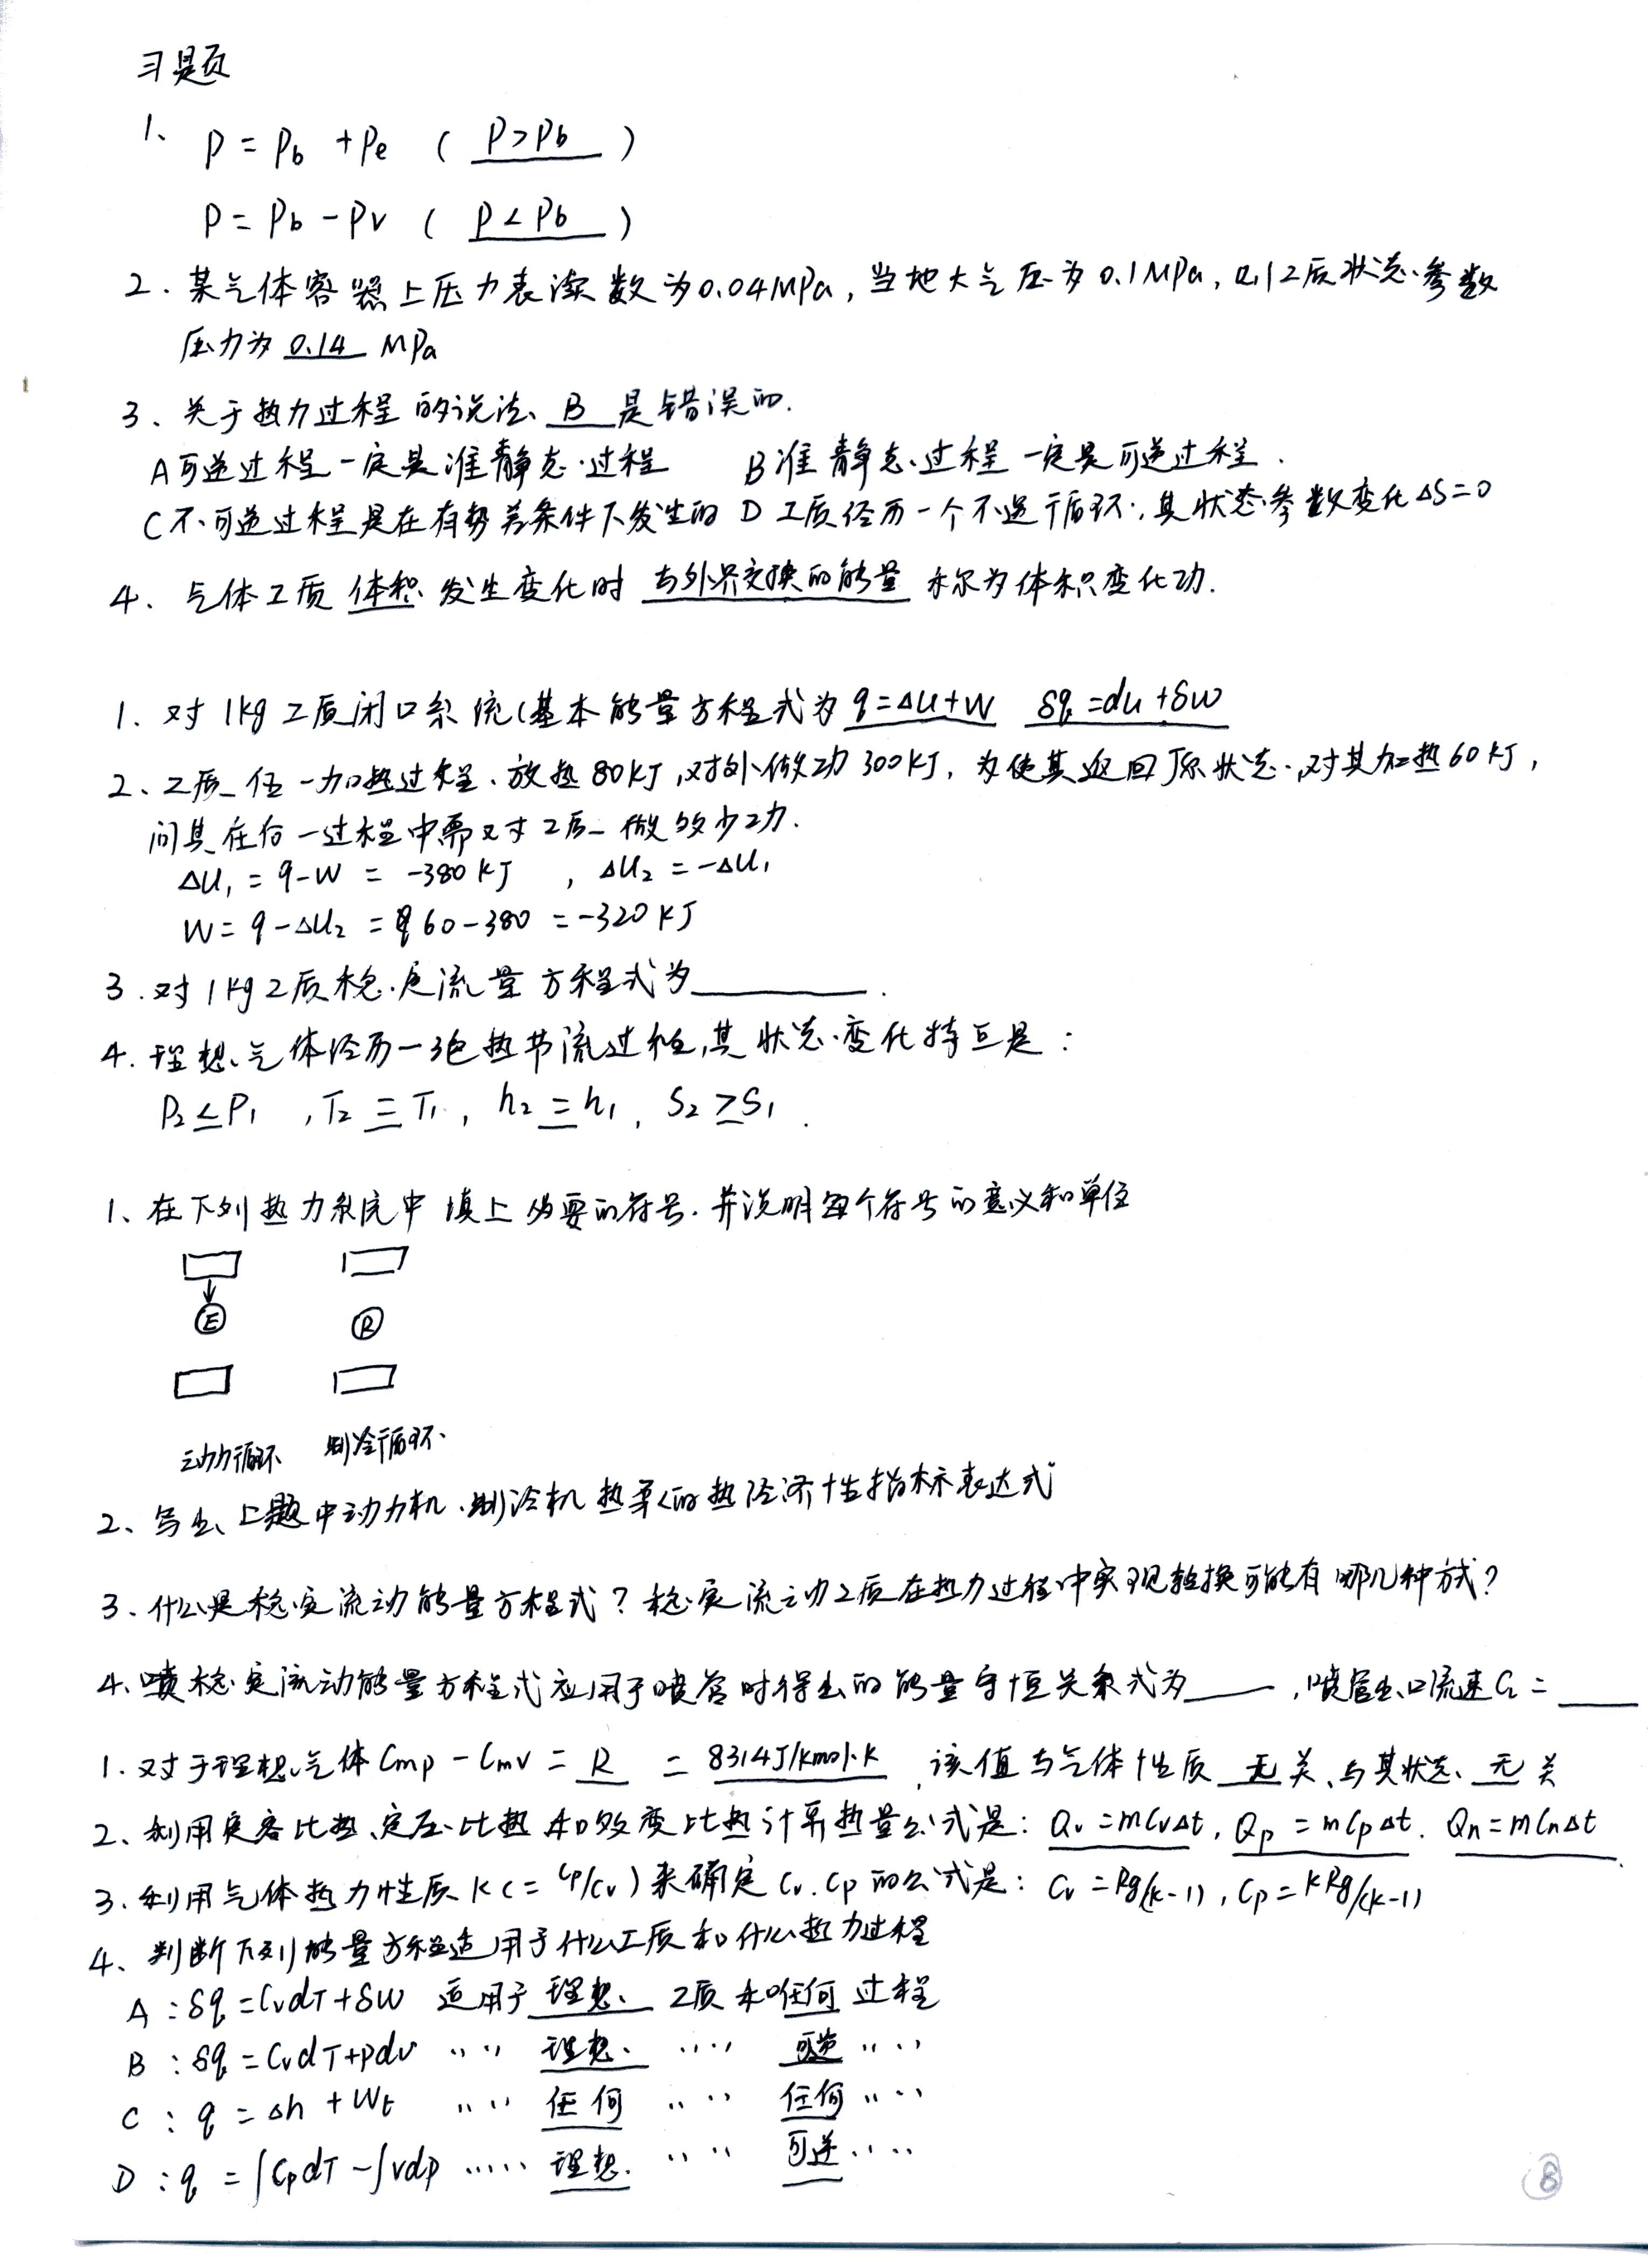 习题页
1、 P = Pb + Pe ( P>Pb )
P = Pb - Pv ( P<Pb )
2. 某气体容器上压力表读数为0.04MPa, 当地大气压为0.1MPa, 则工质状态参数
压力为 0.14 MPa
3、关于热力过程的说法、 B 是错误的.
A可逆过程一定是准静态过程 B准静态过程一定是可逆过程.
C不可逆过程是在有势差条件下发生的 D工质经历一个不逆循环, 其状态参数变化ΔS=0
4、气体工质 体积 发生变化时 与外界交换的能量 称为体积变化功.
1. 对1kg工质闭口系统(基本能量方程式为 q=Δu+w δq=du+δw
2、工质在一加热过程、放热80kJ,对外做功300kJ, 为使其返回原状态,对其加热60kJ,
问其在后一过程中需对工质做多少功.
ΔU₁ = q-W = -380kJ , ΔU₂ = -ΔU₁
W = q-ΔU₂ = 60-380 = -320kJ
3.对1kg工质稳定流量方程式为 .
4.理想气体经历一绝热节流过程,其状态变化特点是:
P₂<P₁ , T₂=T₁, h₂=h₁, S₂>S₁ .
1、在下列热力系统中填上必要的符号.并说明每个符号的意义和单位
E R
动力循环 制冷循环
2、写出上题中动力机、制冷机热泵的热经济性指标表达式
3. 什么是稳定流动能量方程式? 稳定流动工质在热力过程中实现转换可能有哪几种方式?
4、喷稳定流动能量方程式应用于喷管时得出的能量守恒关系式为 ,喷管出口流速C₂=
1.对于理想气体Cmp-Cmv = R = 8314J/kmol·K ,该值与气体性质 无 关、与其状态 无 关
2、利用定容比热、定压比热和多变比热计算热量公式是: Qv=mCvΔt, Qp=mCpΔt. Qn=mCnΔt
3.利用气体热力性质K(=Cp/Cv)来确定Cv.Cp的公式是: Cv=Rg/(K-1), Cp=KRg/(K-1)
4、判断下列能量方程适用于什么工质和什么热力过程
A:δq=CvdT+δW 适用于 理想 工质和任何过程
B:δq=CvdT+pdv ‥‥ 理想 ‥‥ 可逆 ‥‥
C:q=Δh+Wt ‥‥ 任何 ‥‥ 任何 ‥‥
D:q=∫CpdT-∫vdp ‥‥ 理想 ‥‥ 可逆 ‥‥
8